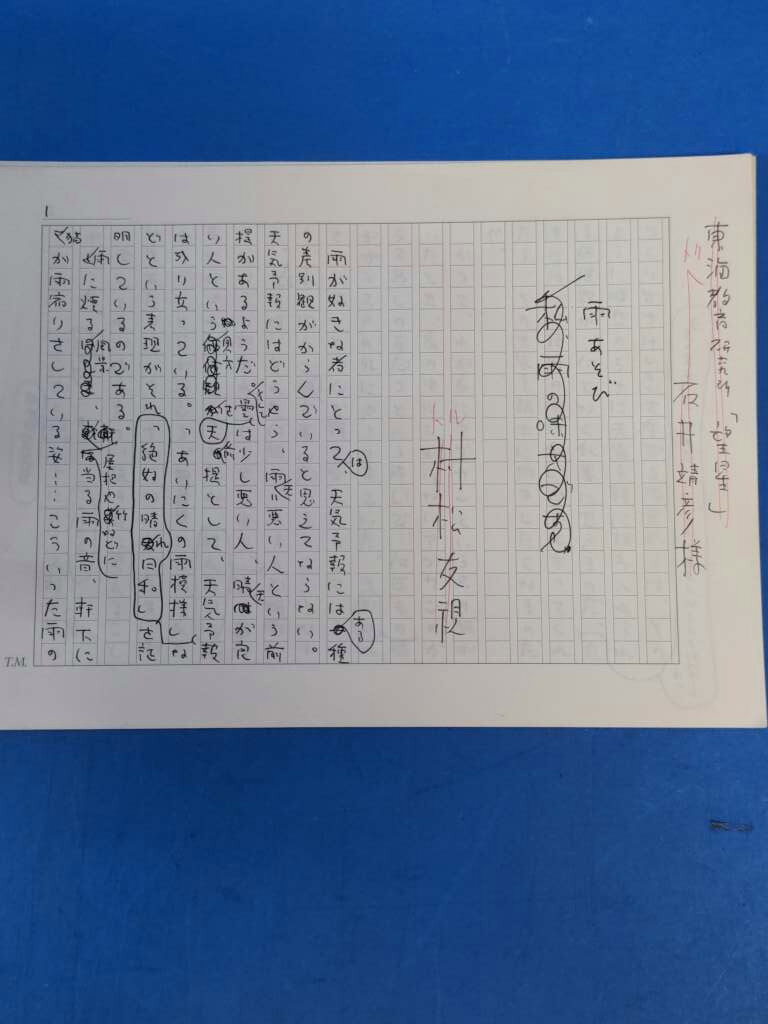 東海教育研究所「望星」
トル
石井靖彦様
雨あそび
トル
村松友視
雨が好きな者にとっては、天気予報にはある種
の差別観がからんでいると思えてならない。
天気予報にはどうやら、雨天は悪い人という前
提があるようだ。曇は少し悪い人、晴天が良
い人という見方を前提として、天気予報
は成り立っている。「あいにくの雨模様」な
どという表現がそれ、「絶好の晴れ日和。」を証
明しているのである。
雨に煙る風景、屋根や竹などに当る雨の音、軒下に
猫が雨宿りさしている姿…こういった雨の
1
T.M.